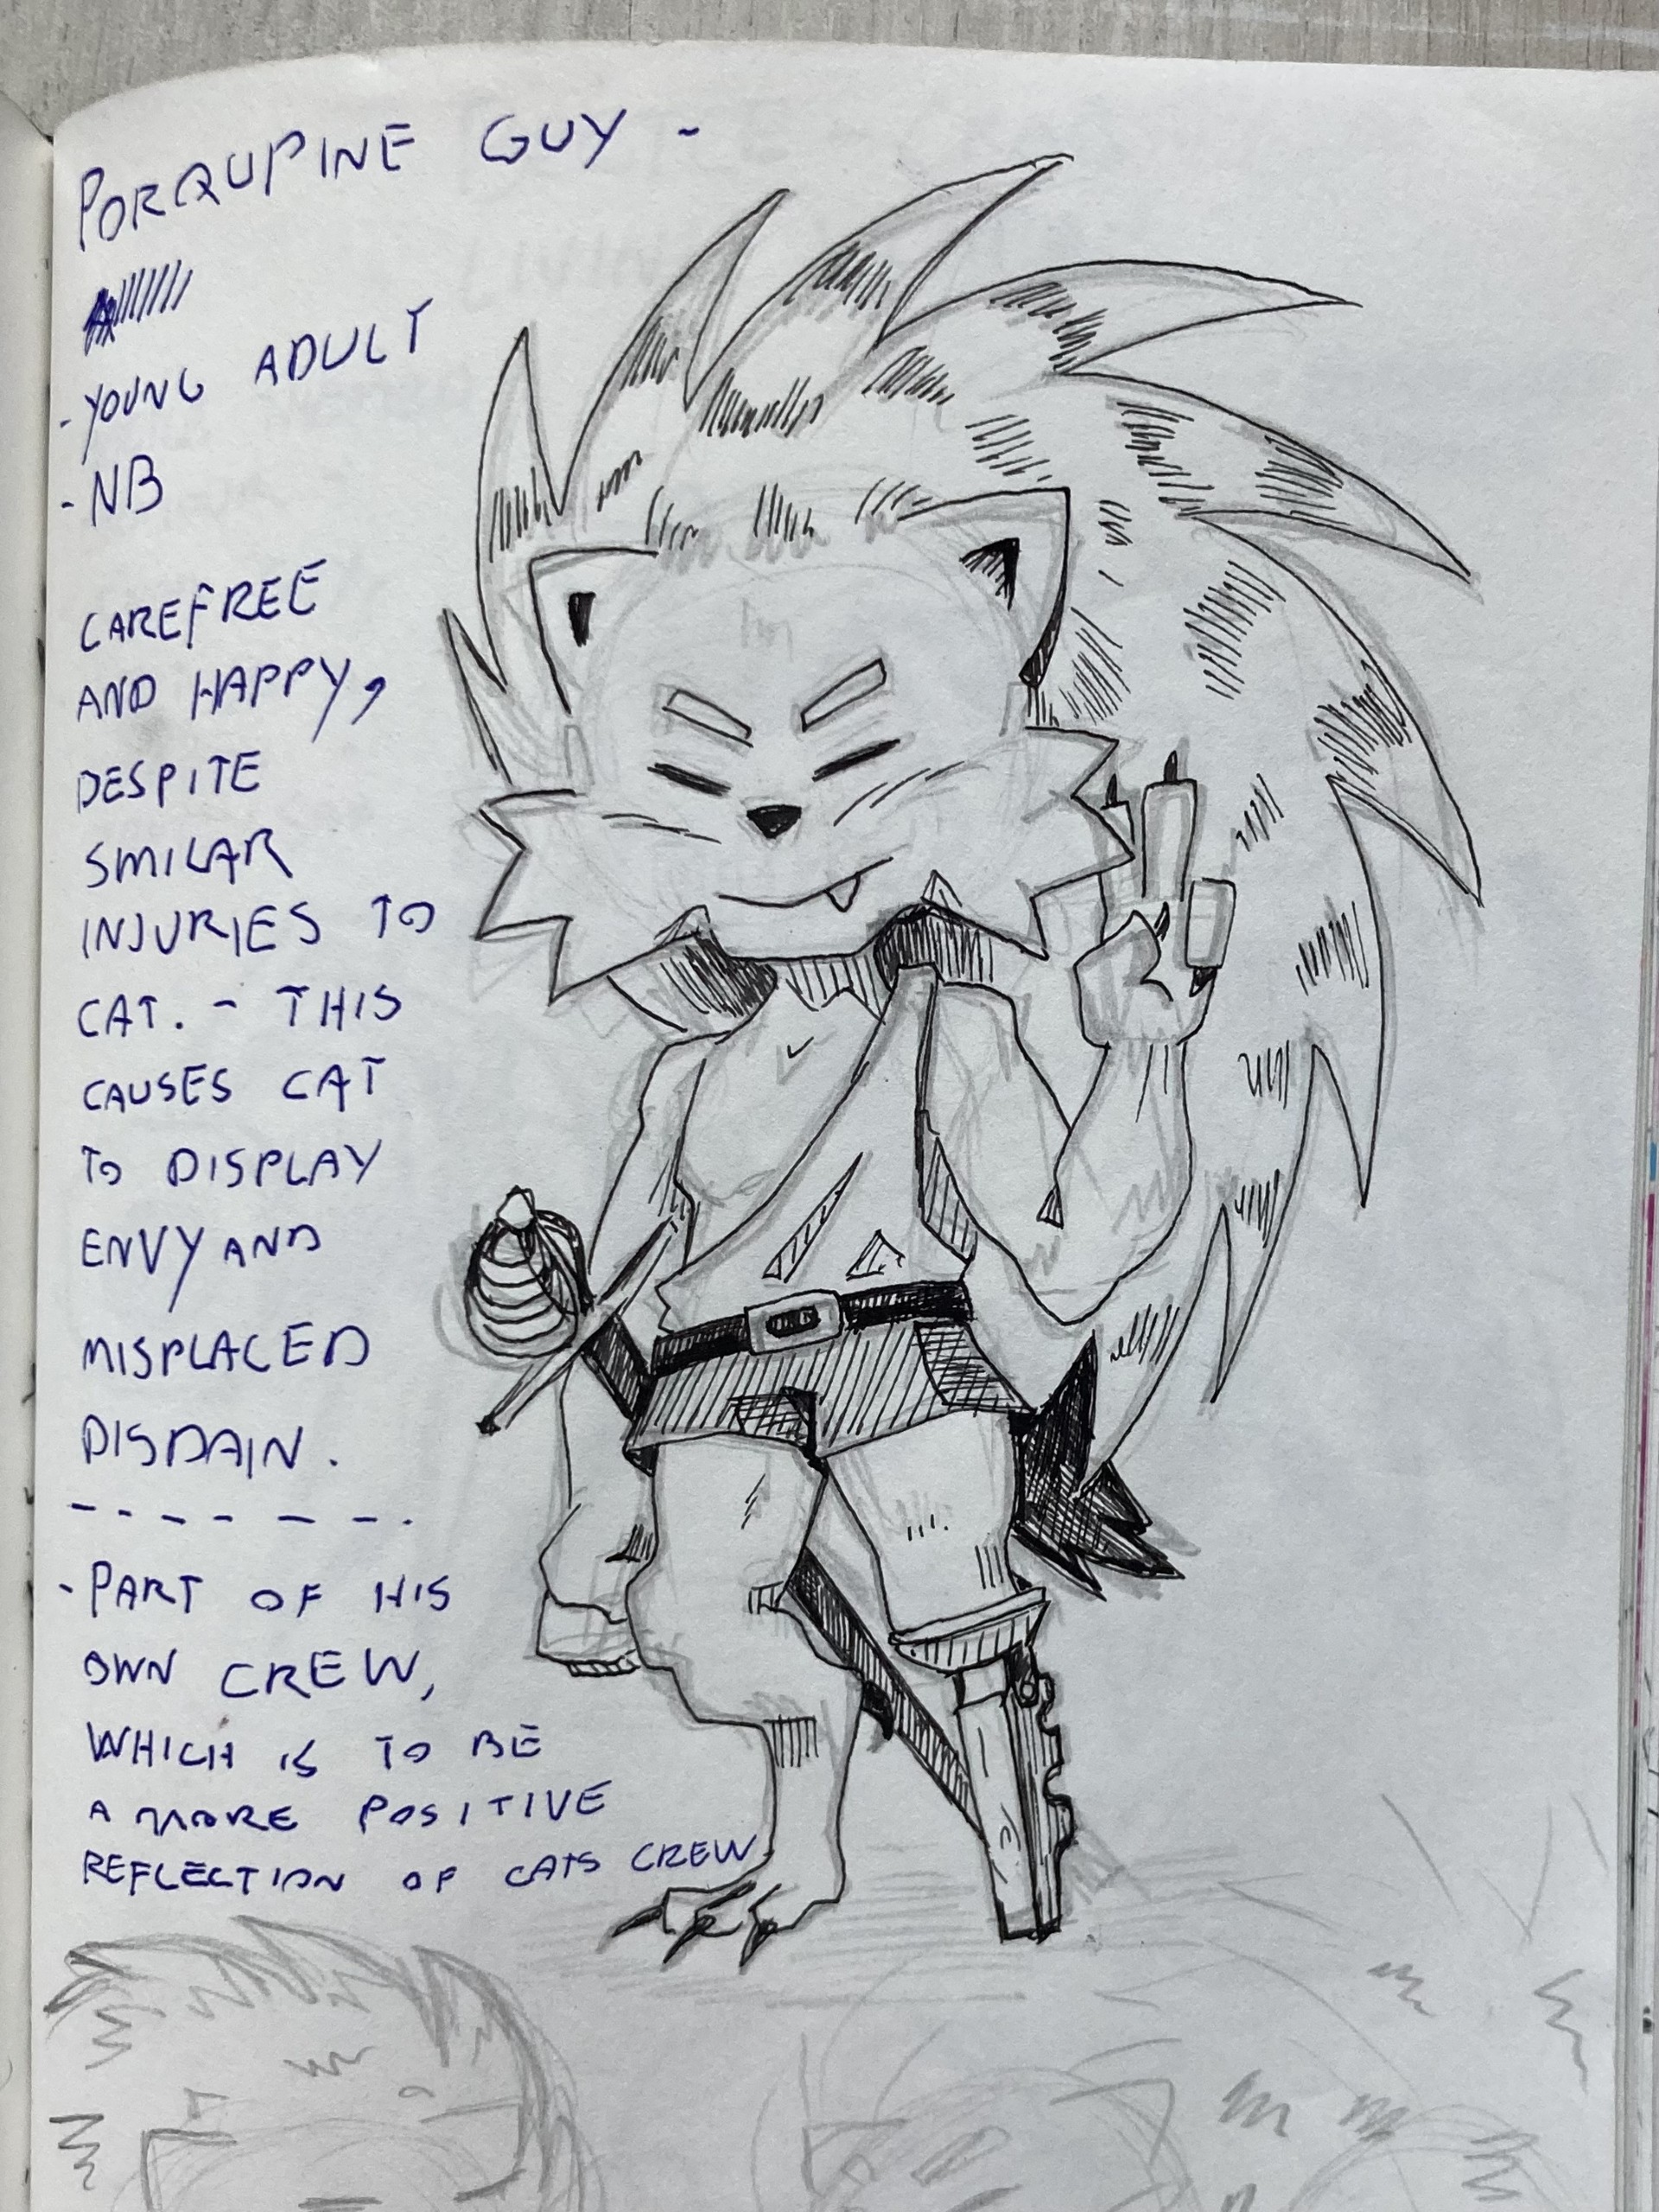 PORQUPINE GUY -
- YOUNG ADULT
- NB
CAREFREE
AND HAPPY,
DESPITE
SMILAR
INJURIES TO
CAT. - THIS
CAUSES CAT
TO DISPLAY
ENVY AND
MISPLACED
DISDAIN.
- - - - - - -
- PART OF HIS
OWN CREW,
WHICH IS TO BE
A MORE POSITIVE
REFLECTION OF CATS CREW